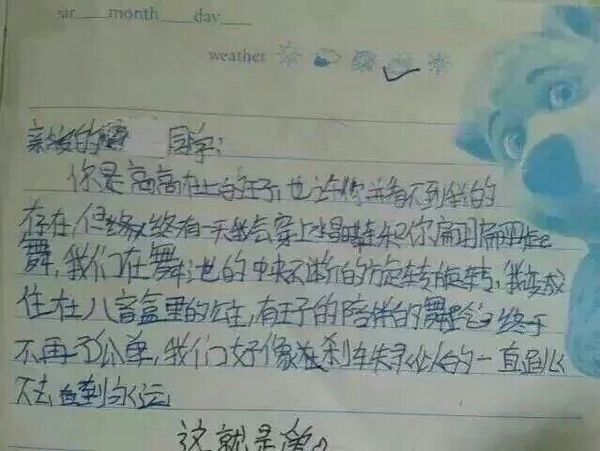 ar___month___day___
weather
亲爱的 同学:
你是高高在上的王子,也许你并看不到我的
存在,但终有一天我会穿上水晶鞋和你翩翩起
舞,我们在舞池的中央不断的旋转旋转,我变成
住在八音盒里的公主,有王子的陪伴的舞蹈终于
不再孤单,我们好像刹车失灵似的一直跳
下去,直到永远
这就是爱。